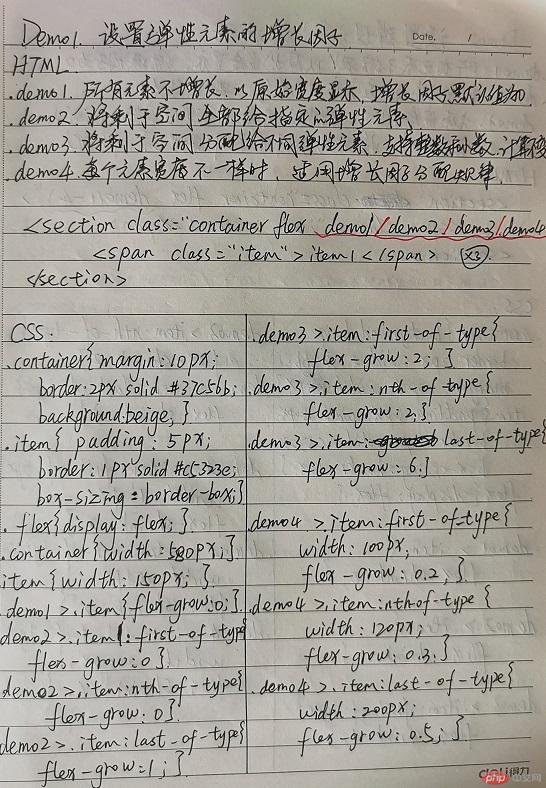 Demo1. 设置弹性元素的增长因子
Date. /
HTML.
.demo1. 所有元素不增长, 以原始宽度显示, 增长因子默认值为0
.demo2. 将剩于空间全部给指定的弹性元素
.demo3. 将剩于空间分配给不同弹性元素, 支持整数和小数, 计算不变
.demo4. 每个元素宽度不一样时, 适用增长因子分配规律.
<section class="container flex demo1/demo2/demo3/demo4
<span class="item">item1</span> (x3)
</section>
CSS:
.container{margin:10px;
border:2px solid #37c5bb;
background:beige;}
.item{ padding: 5px;
border:1px solid #c5323e;
box-sizing=border-box;}
.flex{display:flex;}
.container{width:580px;}
item{width:150px;}
.demo1>.item{flex-grow:0;}
demo2>.item:first-of-type{
flex-grow:0}
demo2>.item:nth-of-type{
flex-grow:0}
demo2>.item:last-of-type{
flex-grow=1;}
.demo3>.item:first-of-type{
flex-grow:2;}
.demo3>.item:nth-of-type{
flex-grow:2;}
.demo3>.item:last-of-type{
flex-grow:6.}
.demo4>.item:first-of-type{
width:100px;
flex-grow:0.2;}
.demo4>.item:nth-of-type{
width:120px;
flex-grow:0.3;}
.demo4>.item:last-of-type{
width:200px;
flex-grow:0.5;}
deli得力
php中文网